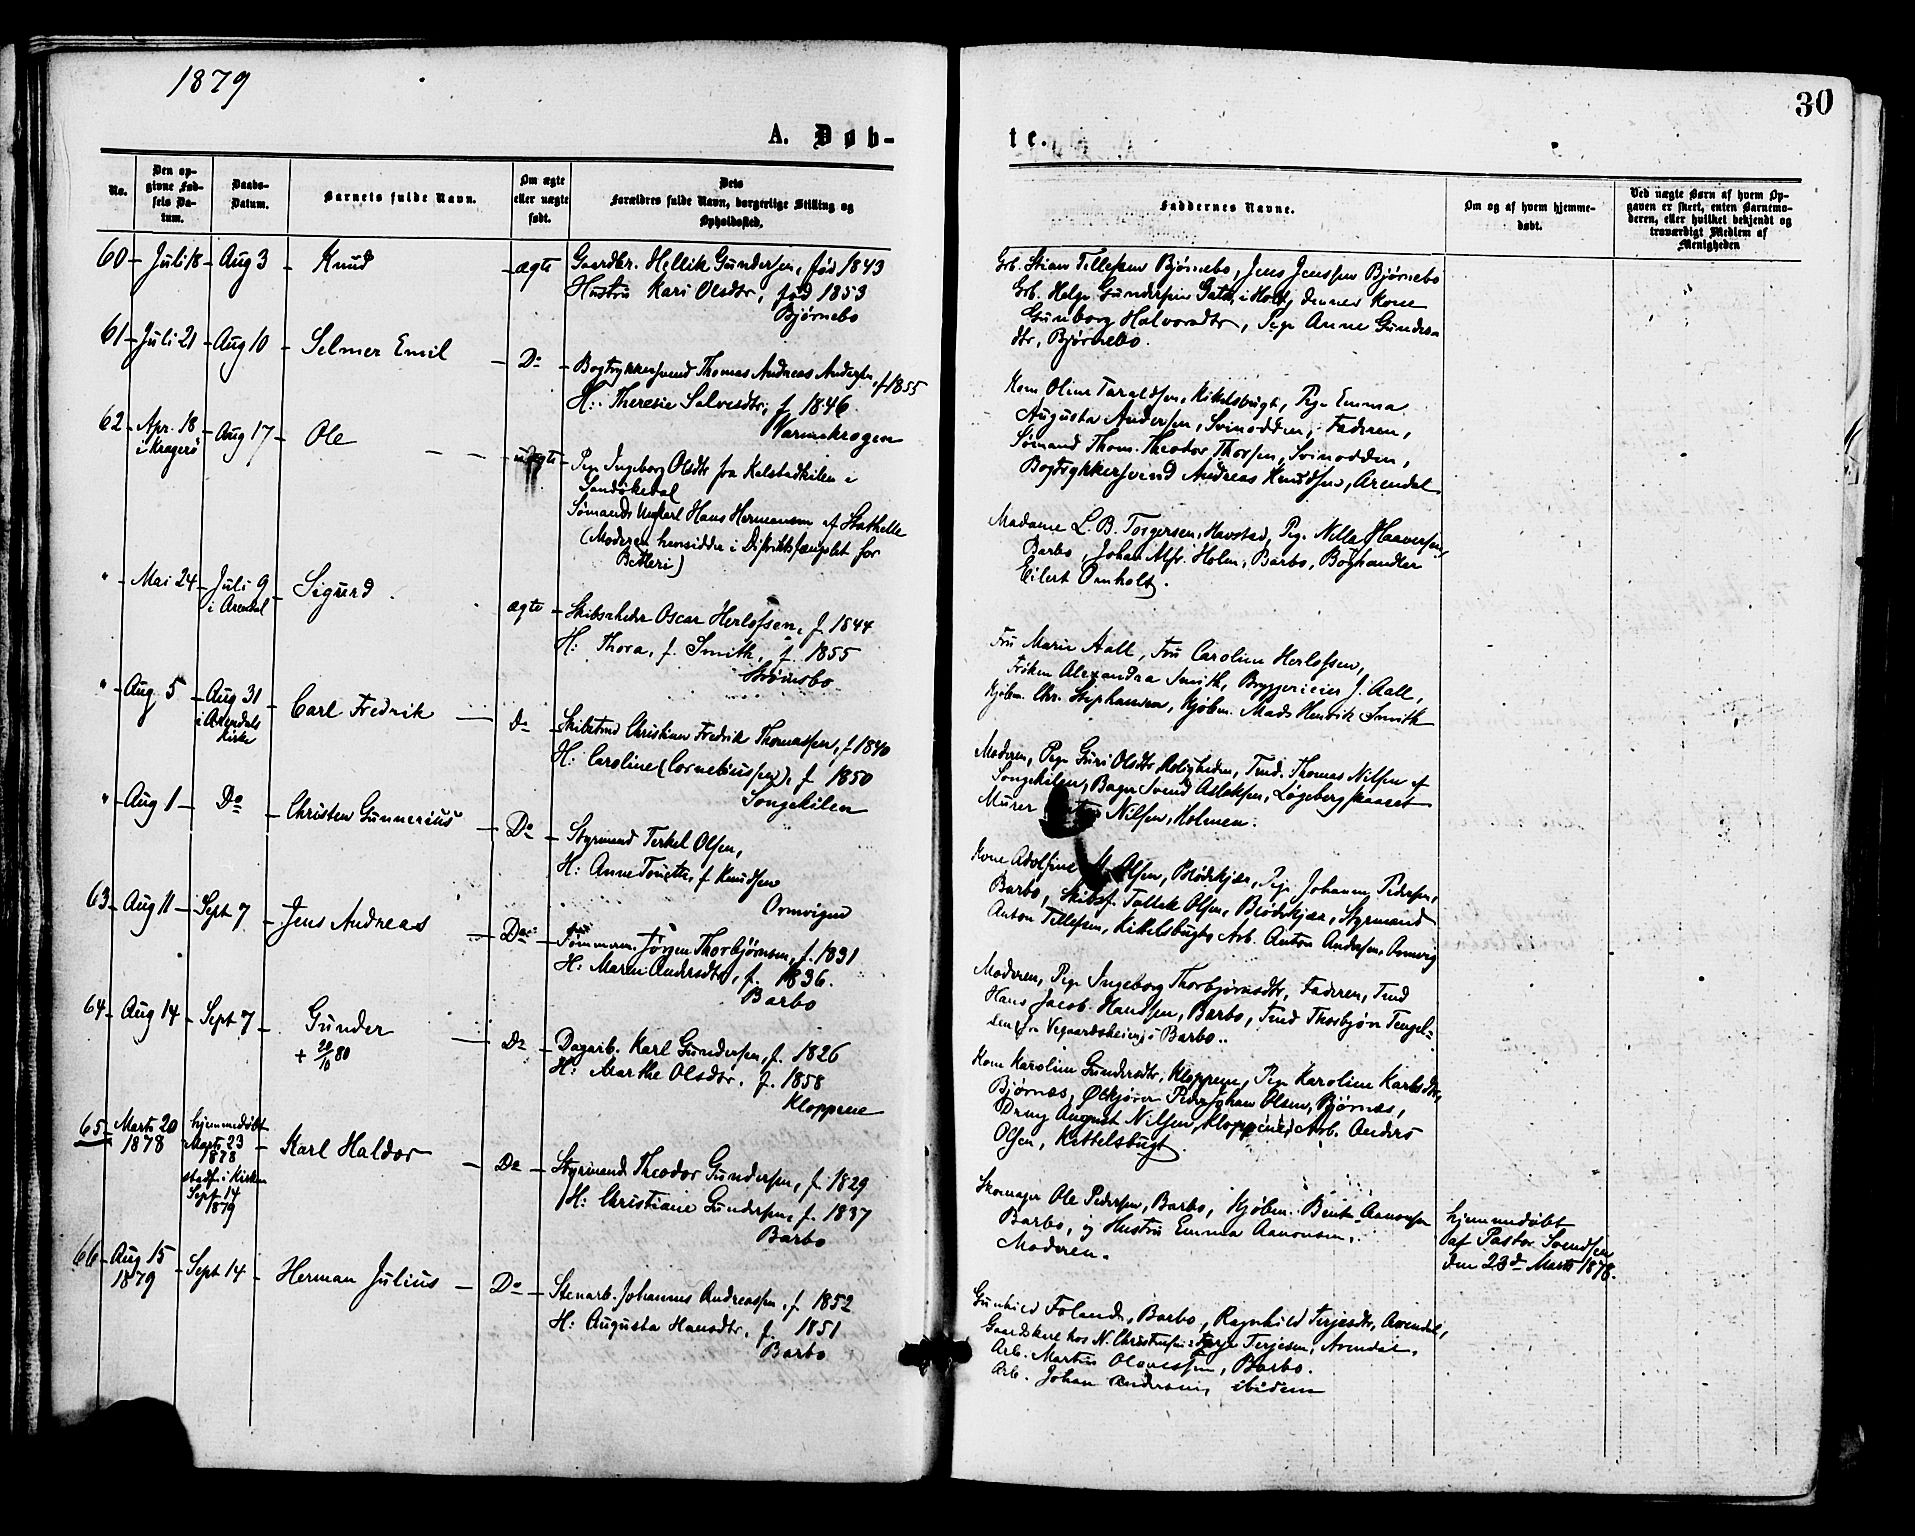 1879
30
A. Døb-
te.
No.
Den op-
givne Fød-
sels Da-
tum.
Daabs-
Datum.
Barnets fulde Navn.
Om ægte
eller uægte
født.
Dets
Forældres fulde Navn, borgerlige Stilling og
Opholdssted.
Faddernes Navne.
Om og af hvem hjemme-
døbt.
Ved uægte Børn af hvem Op-
gaven er skeet, enten Barnemo-
deren, eller hvilket bekjendt og
troværdigt Medlem af
Menigheden
60 Juli 18 Aug 3 Knud ægte Gaardbr. Hellik Gundersen, fød 1843
Hustru Kari Olsdtr, fød 1853
Bjørnebo
Grb. Stian Tellefsen Bjørnebo, Jens Jenssen Bjørnebo
Grb. Helge Gundersen i Holt, dennes Kone
Gunborg Halvorsdtr, Pige Anne Gunders
dtr, Bjørnebo.
61 Juli 21 Aug 10 Selmer Emil Do Bogtrykkersvend Thomas Andreas Andersen, f 1855
H: Therese Salvesdtr, f 1846.
Varmekrogen
Kone Oline Taraldsen, Kittelsbugt, Pige Emma
Augusta Andersen, Svinodden, Faderen,
Sømand Thom. Theodor Thorsen, Svinodden,
Bogtrykkersvend Andreas Knudsen, Arendal
62 Apr. 18
i Kragerø Aug 17 Ole uægte Pige Ingeborg Olsdtr fra Kalstadkilen i
Sandøkedal
Sømand Ungkarl Hans Hermansen af Stathelle
(Moderen hensidder i Distriktsfængslet for
Betleri)
Madame L. B. Torgersen, Havstad, Pige Nilla Haaversen,
Barbo, Johan Alfr. Holm, Barbo, Boghandler
Eilert Ornholt.
" Mai 24 Juli 9
i Arendal Sigurd ægte Skibsreder Oscar Herlofsen, f. 1844
H: Thora, f. Smith, f. 1855
Strømsbo
Fru Marie Aall, Fru Caroline Herlofsen,
Frøken Alexandra Smith, Bryggerieier J. Aall,
Kjøbm. Chr. Stephansen, Kjøbm. Mads Henrik Smith
" Aug 5 Aug 31
i Arendals
Kirke Carl Fredrik Do Skibstmd Christian Fredrik Thomassen, f 1840
H: Caroline (Corneliussen), f 1850
Songekilen
Moderen, Pige Guri Olsdtr Roligheden, Tmd. Thomas Nilsen af
Songekilen, Bager Svend Aslaksen, Løgebergskaaset
Murer Nilsen, Holmen.
" Aug 1 Do Christen Gunnerius Do Styrmand Terkel Olsen,
H: Anne Tonette, f Knudsen
Ormvigen
Kone Adolfine M. Olsen, Blødekjær, Pige Johanne Pedersen,
Barbo, Skibsf. Tallak Olsen, Blødekjær, Styrmand
Anton Tellefsen, Kittelsbugt, Arb. Anton Andersen, Ormvig
63 Aug 11 Sept 7 Jens Andreas Do Tømmerm. Jørgen Thorbjørnsen, f. 1831
H: Maren Andersdtr, f. 1836.
Barbo
Moderen, Pige Ingeborg Thorbjørnsdtr, Faderen, Tmd
Hans Jacob Handsen, Barbo, Tmd Thorbjørn Tengel-
sen fra Vegaardsheien, i Barbo.
64 Aug 14 Sept 7 Gunder
+ 20/10 80 Do Dagarb. Karl Gundersen, f. 1826
H: Marthe Olsdtr. f. 1858
Kloppene
Kone Karoline Gundersdtr, Kloppene, Pige Karoline Karlsdtr,
Bjørnæs, Ølkjører Peder Johan Olsen, Bjørnæs,
Dreng August Nilsen, Kloppene, Arb. Anders
Olsen, Kittelsbugt.
65 Marts 20
1878 hjemmedøbt
Marts 23
1878
stadf. i Kirken
Sept 14
1879 Karl Haldor Do Styrmand Theodor Gundersen, f. 1829
H: Christiane Gundersen, f. 1837
Barbo
Skomager Ole Pedersen, Barbo, Kjøbm. Aanonsen
Barbo, og Hustru Emma Aanonsen,
Moderen.
hjemmedøbt
af Pastor Svendsen
den 23d Marts 1878.
66 Aug 15
1879 Sept 14 Herman Julius Do Stenarb. Johannes Andreassen, f 1852
H: Augusta Hansdtr, f. 1851
Barbo
Gunhild Foland, Barbo, Ragnhild Terjesdtr, Arendal,
Gaardskarl hos N. Christensen: Terje Terjesen, Arendal.
Arb. Martin Olavessen, Barbo.
Arb. Johan Andersen, ibidem